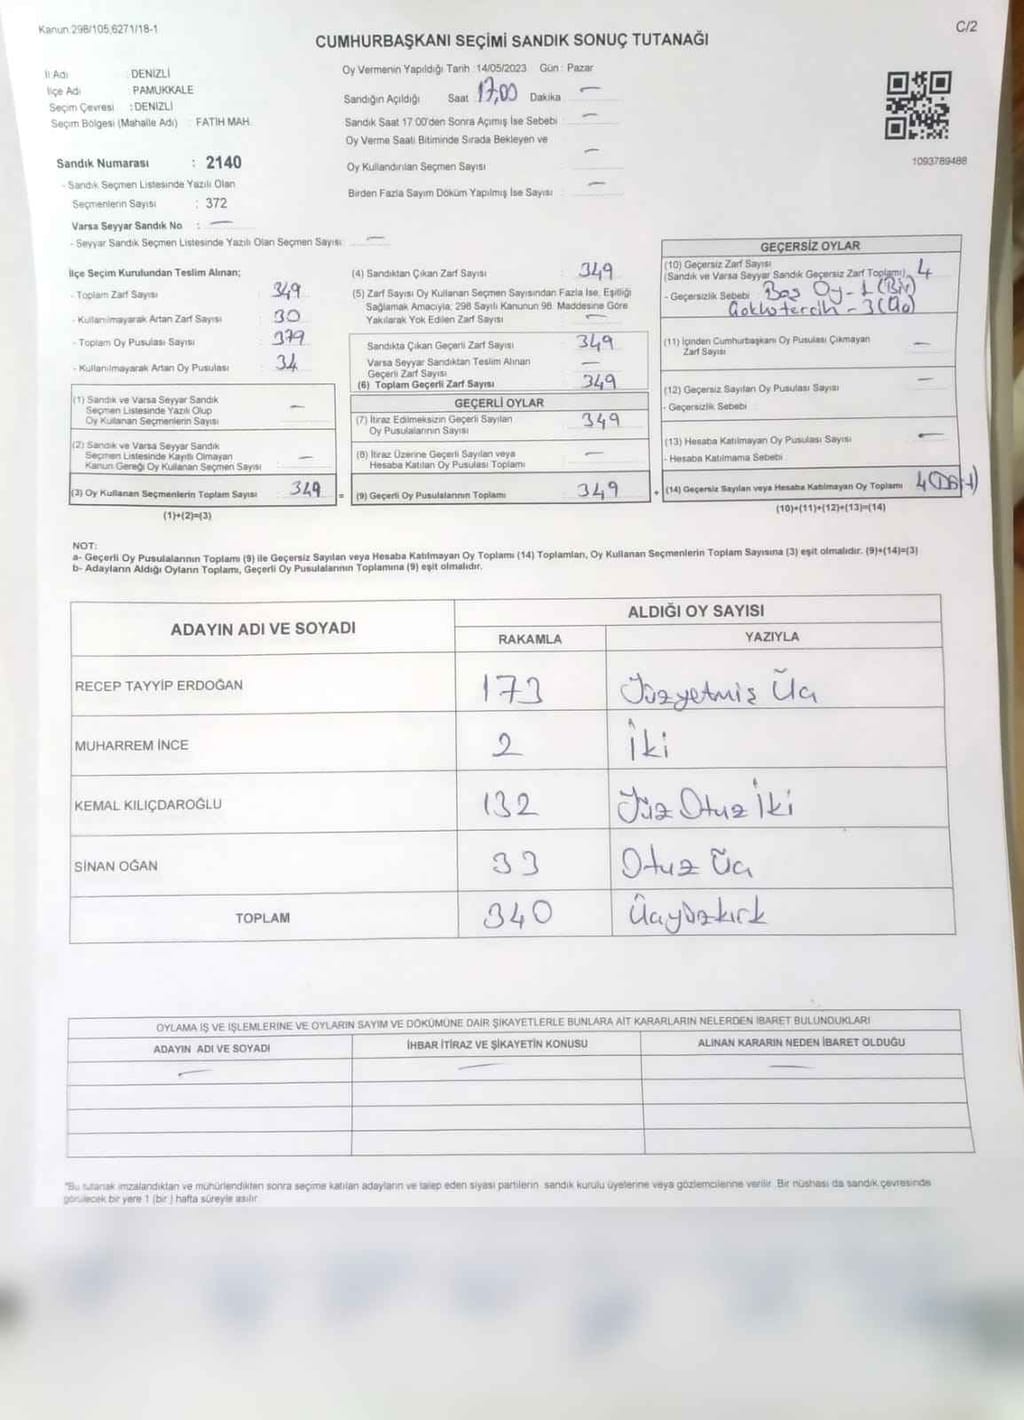 Kanun 298/105,6271/18-1
C/2
CUMHURBAŞKANI SEÇİMİ SANDIK SONUÇ TUTANAĞI
İl Adı : DENİZLİ
İlçe Adı : PAMUKKALE
Seçim Çevresi : DENİZLİ
Seçim Bölgesi (Mahalle Adı) : FATİH MAH.
Sandık Numarası : 2140
- Sandık Seçmen Listesinde Yazılı Olan
Seçmenlerin Sayısı : 372
Varsa Seyyar Sandık No : —
- Seyyar Sandık Seçmen Listesinde Yazılı Olan Seçmen Sayısı —
Oy Vermenin Yapıldığı Tarih : 14/05/2023 Gün : Pazar
Sandığın Açıldığı Saat 17,00 Dakika —
Sandık Saat 17:00'den Sonra Açımış İse Sebebi —
Oy Verme Saati Bitiminde Sırada Bekleyen ve
Oy Kullandırılan Seçmen Sayısı —
Birden Fazla Sayım Döküm Yapılmış İse Sayısı —
1093789488
İlçe Seçim Kurulundan Teslim Alınan;
- Toplam Zarf Sayısı 349
- Kullanılmayarak Artan Zarf Sayısı 30
- Toplam Oy Pusulası Sayısı 379
- Kullanılmayarak Artan Oy Pusulası 34
(1) Sandık ve Varsa Seyyar Sandık
Seçmen Listesinde Yazılı Olup
Oy Kullanan Seçmenlerin Sayısı —
(2) Sandık ve Varsa Seyyar Sandık
Seçmen Listesinde Kayıtlı Olmayan
Kanun Gereği Oy Kullanan Seçmen Sayısı —
(3) Oy Kullanan Seçmenlerin Toplam Sayısı 349 =
(1)+(2)=(3)
(4) Sandıktan Çıkan Zarf Sayısı : 349
(5) Zarf Sayısı Oy Kullanan Seçmen Sayısından Fazla İse, Eşitliği
Sağlamak Amacıyla, 298 Sayılı Kanunun 98. Maddesine Göre
Yakılarak Yok Edilen Zarf Sayısı —
Sandıkta Çıkan Geçerli Zarf Sayısı 349
Varsa Seyyar Sandıktan Teslim Alınan
Geçerli Zarf Sayısı —
(6) Toplam Geçerli Zarf Sayısı 349
GEÇERLİ OYLAR
(7) İtiraz Edilmeksizin Geçerli Sayılan
Oy Pusulalarının Sayısı 349
(8) İtiraz Üzerine Geçerli Sayılan veya
Hesaba Katılan Oy Pusulası Toplamı —
(9) Geçerli Oy Pusulalarının Toplamı 349 +
GEÇERSİZ OYLAR
(10) Geçersiz Zarf Sayısı
(Sandık ve Varsa Seyyar Sandık Geçersiz Zarf Toplamı) 4
- Geçersizlik Sebebi Boş Oy - 1 (Bir)
3
(11) İçinden Cumhurbaşkanı Oy Pusulası Çıkmayan
Zarf Sayısı —
(12) Geçersiz Sayılan Oy Pusulası Sayısı —
- Geçersizlik Sebebi
(13) Hesaba Katılmayan Oy Pusulası Sayısı —
- Hesaba Katılmama Sebebi
(14) Geçersiz Sayılan veya Hesaba Katılmayan Oy Toplamı 4
(10)+(11)+(12)+(13)=(14)
NOT:
a- Geçerli Oy Pusulalarının Toplamı (9) ile Geçersiz Sayılan veya Hesaba Katılmayan Oy Toplamı (14) Toplamları, Oy Kullanan Seçmenlerin Toplam Sayısına (3) eşit olmalıdır. (9)+(14)=(3)
b- Adayların Aldığı Oyların Toplamı, Geçerli Oy Pusulalarının Toplamına (9) eşit olmalıdır.
ADAYIN ADI VE SOYADI
ALDIĞI OY SAYISI
RAKAMLA YAZIYLA
RECEP TAYYİP ERDOĞAN 173 Yüzyetmiş Üç
MUHARREM İNCE 2 İki
KEMAL KILIÇDAROĞLU 132 Yüz Otuz İki
SİNAN OĞAN 33 Otuz Üç
TOPLAM 340 Üçyüzkırk
OYLAMA İŞ VE İŞLEMLERİNE VE OYLARIN SAYIM VE DÖKÜMÜNE DAİR ŞİKAYETLERLE BUNLARA AİT KARARLARIN NELERDEN İBARET BULUNDUKLARI
ADAYIN ADI VE SOYADI İHBAR İTİRAZ VE ŞİKAYETİN KONUSU ALINAN KARARIN NEDEN İBARET OLDUĞU
— — —
*Bu tutanak imzalandıktan ve mühürlendikten sonra seçime katılan adayların ve talep eden siyasi partilerin sandık kurulu üyelerine veya gözlemcilerine verilir. Bir nüshası da sandık çevresinde
görülecek bir yere 1 (bir) hafta süreyle asılır.